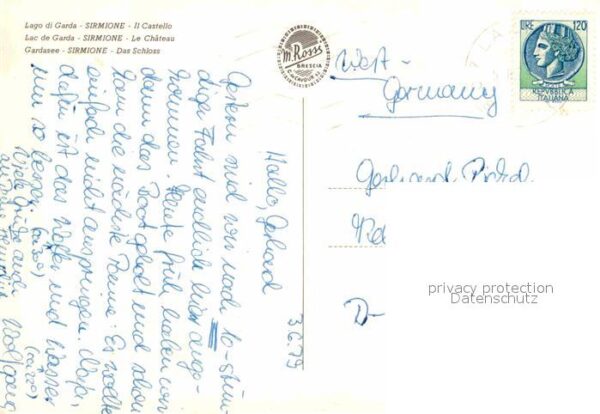 Lago di Garda - SIRMIONE - Il Castello
Lac de Garda - SIRMIONE - Le Château
Gardasee - SIRMIONE - Das Schloss
m. Ross
BRESCIA
C. CAVOUR 42
LIRE 120
REPUBBLICA
ITALIANA
West-
Germany
Gerhard
D-
privacy protection
Datenschutz
3.6.79
Hallo, Gerhard
Gestern sind wir nach 10-stün-
diger Fahrt endlich hier ange-
kommen. Heute früh haben wir
dann das Boot geholt und schon
kam die nächste Panne: Es wollte
einfach nicht anspringen. Naja,
dafür ist das Wetter und Wasser
um so besser
Viele Grüße auch
Wolfgang